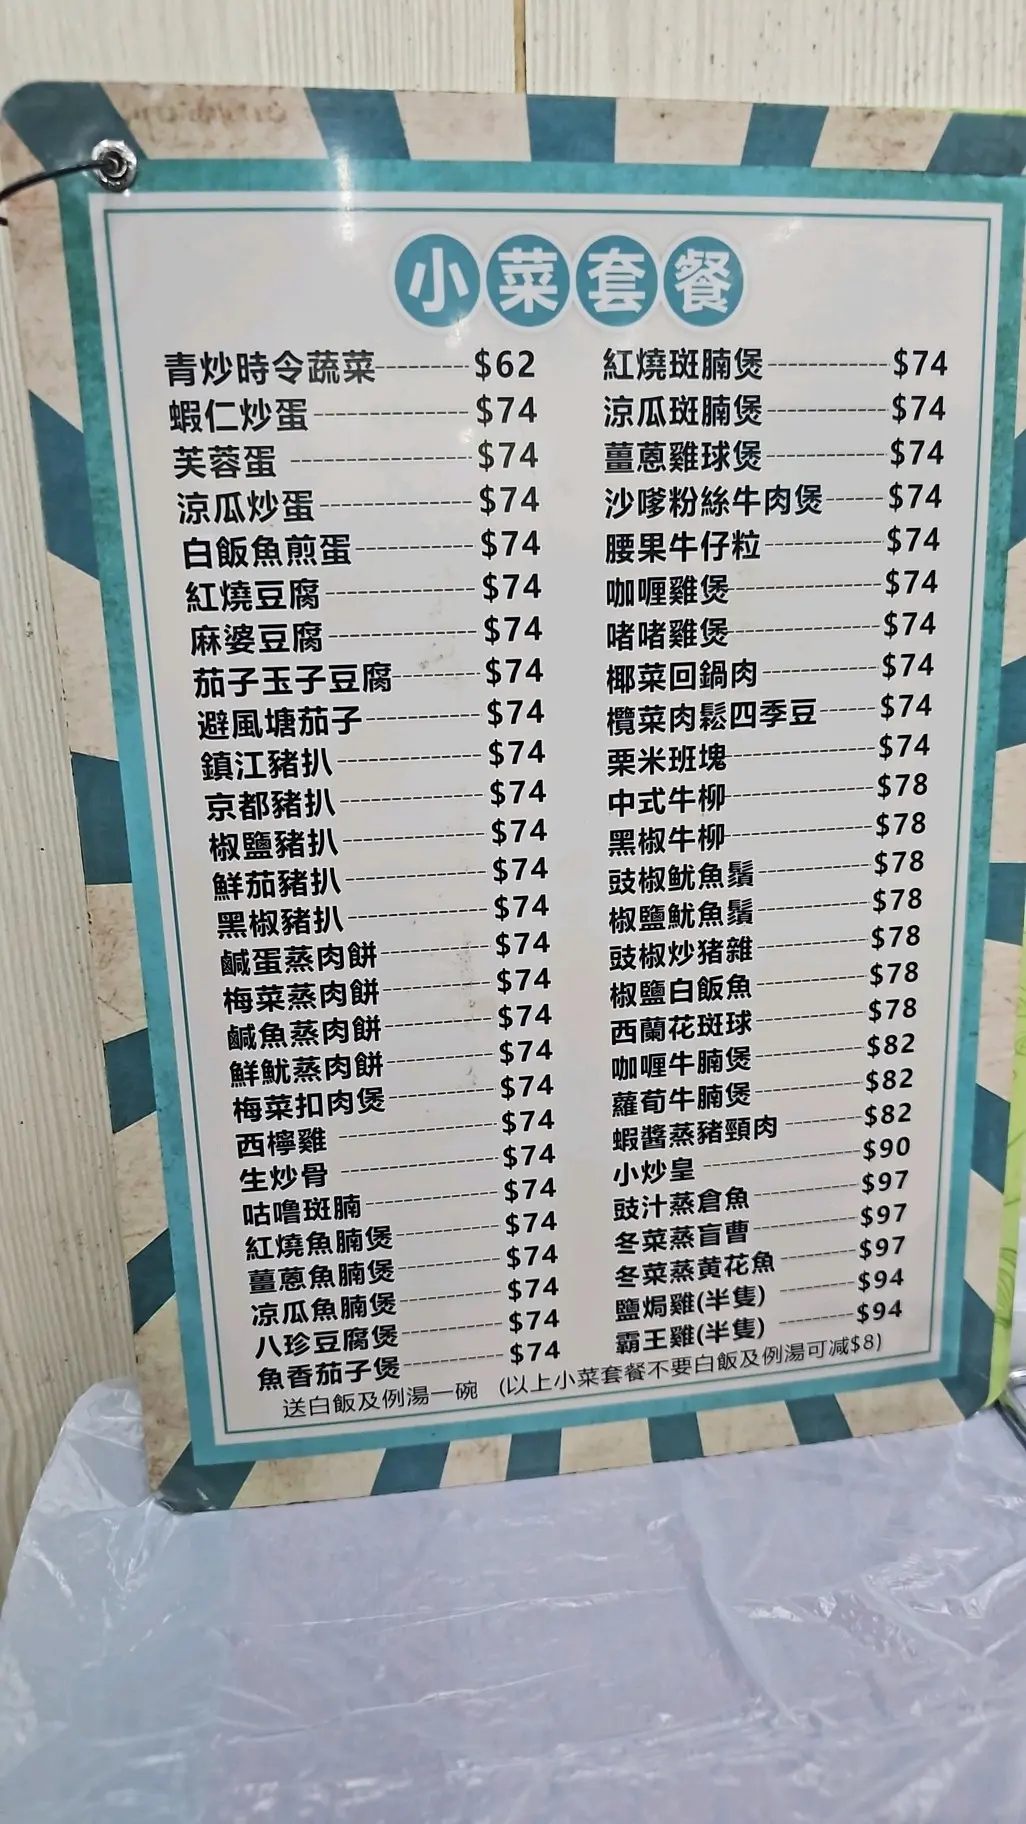 小菜套餐
青炒時令蔬菜 $62
蝦仁炒蛋 $74
芙蓉蛋 $74
涼瓜炒蛋 $74
白飯魚煎蛋 $74
紅燒豆腐 $74
麻婆豆腐 $74
茄子玉子豆腐 $74
避風塘茄子 $74
鎮江豬扒 $74
京都豬扒 $74
椒鹽豬扒 $74
鮮茄豬扒 $74
黑椒豬扒 $74
鹹蛋蒸肉餅 $74
梅菜蒸肉餅 $74
鹹魚蒸肉餅 $74
鮮魷蒸肉餅 $74
梅菜扣肉煲 $74
西檸雞 $74
生炒骨 $74
咕嚕斑腩 $74
紅燒魚腩煲 $74
薑蔥魚腩煲 $74
凉瓜魚腩煲 $74
八珍豆腐煲 $74
魚香茄子煲 $74
紅燒斑腩煲 $74
涼瓜斑腩煲 $74
薑蔥雞球煲 $74
沙嗲粉絲牛肉煲 $74
腰果牛仔粒 $74
咖喱雞煲 $74
啫啫雞煲 $74
椰菜回鍋肉 $74
欖菜肉鬆四季豆 $74
栗米班塊 $74
中式牛柳 $78
黑椒牛柳 $78
豉椒魷魚鬚 $78
椒鹽魷魚鬚 $78
豉椒炒猪雜 $78
椒鹽白飯魚 $78
西蘭花斑球 $78
咖喱牛腩煲 $82
蘿蔔牛腩煲 $82
蝦醬蒸豬頸肉 $82
小炒皇 $90
豉汁蒸倉魚 $97
冬菜蒸盲曹 $97
冬菜蒸黄花魚 $97
鹽焗雞(半隻) $94
霸王雞(半隻) $94
送白飯及例湯一碗 (以上小菜套餐不要白飯及例湯可減$8)